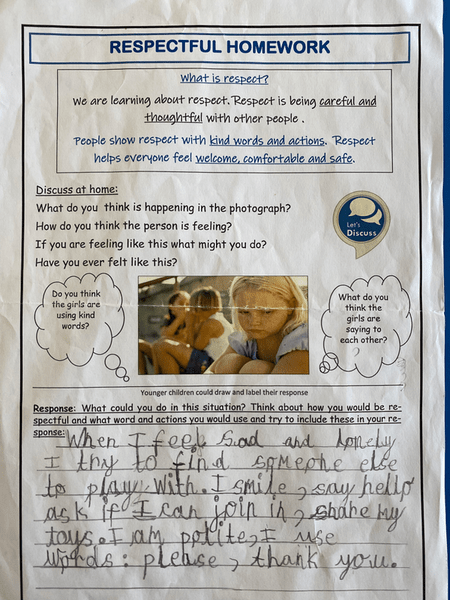 RESPECTFUL HOMEWORK
What is respect?
We are learning about respect. Respect is being careful and
thoughtful with other people .
People show respect with kind words and actions. Respect
helps everyone feel welcome, comfortable and safe.
Discuss at home:
What do you think is happening in the photograph?
How do you think the person is feeling?
If you are feeling like this what might you do?
Have you ever felt like this?
Let's
Discuss
Do you think
the girls are
using kind
words?
What do you
think the
girls are
saying to
each other?
Younger children could draw and label their response
Response: What could you do in this situation? Think about how you would be re-
spectful and what word and actions you would use and try to include these in your re-
sponse:
When I feel sad and lonely
I thy to find someone else
to play with. I smile, say hello
ask if I can join in, share my
toys. I am polite, I use
words: please, thank you.